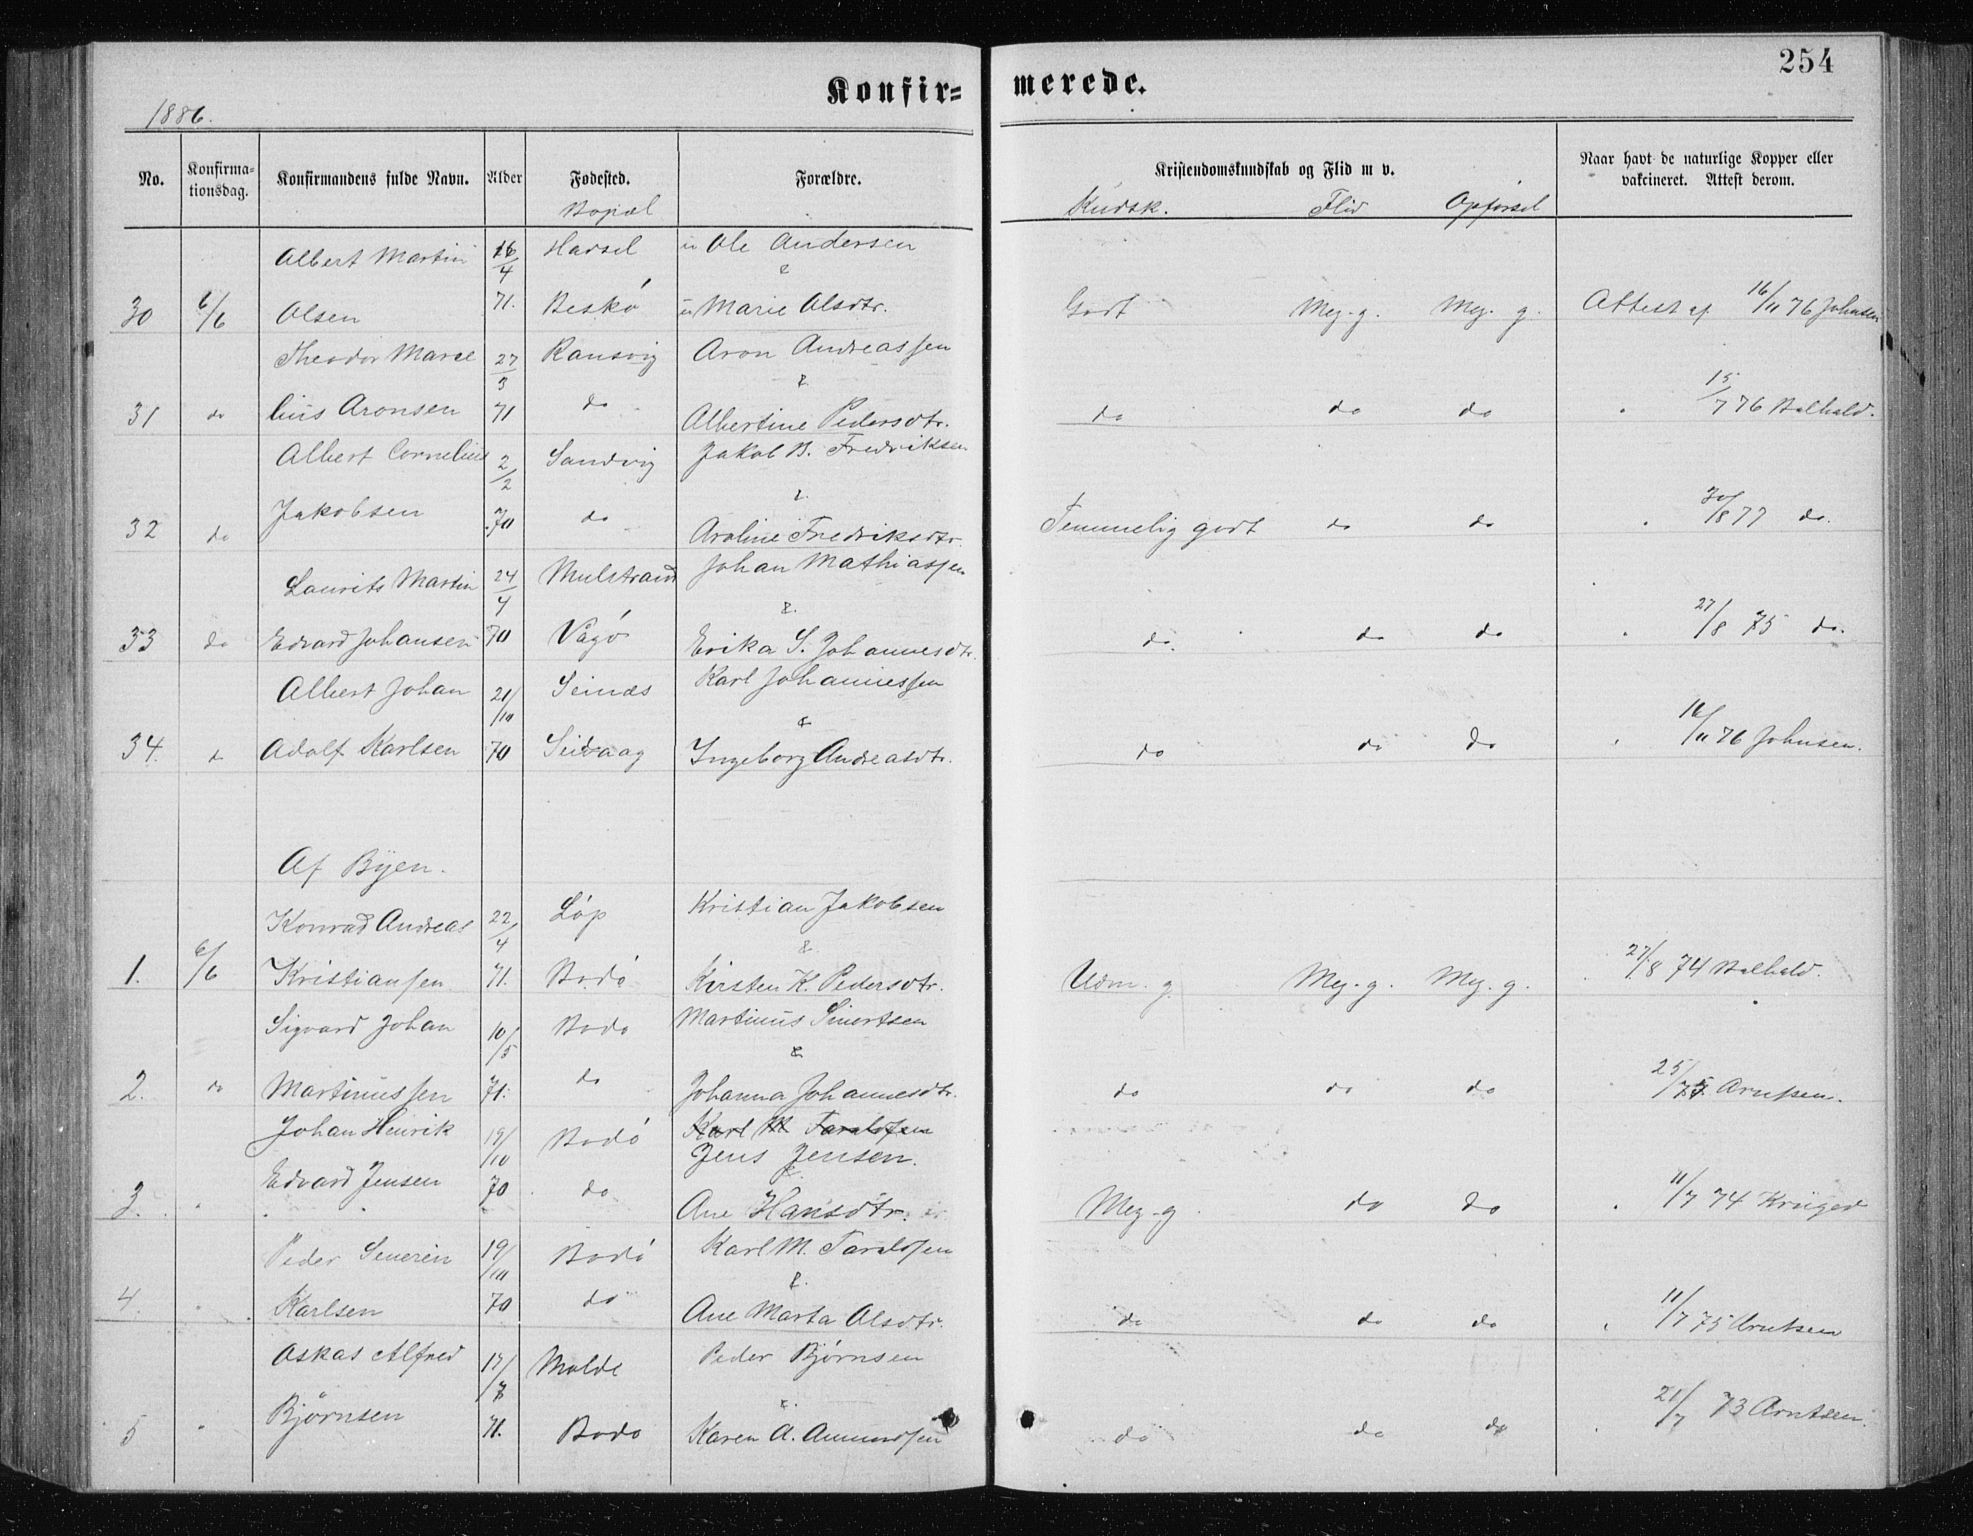 254
Konfir=merede.
1886.
No. Konfirma-tionsdag. Konfirmandens fulde Navn. Alder Fødested. Forældre. Kristendomskundskab og Flid m v. Naar havt de naturlige Kopper eller vakcineret. Attest derom.
Bopæl Kudsk. Flid Opførsel
Albert Martin 16/4 Hadsel u Ole Andersen
&
30 6/6 Olsen 71. Beskø u Marie Olsdtr. Godt Meg. g. Meg. g. Attest af 16/11 76 Johnsen
Theodor Marce 27/3 Ransvig Aron Andreassen
&
31 do lius Aronsen 71 do Albertine Pedersdtr. do do do 15/7 76 Balhald.
Albert Cornelius 2/2 Sandvig Jakob B. Fredriksen
&
32 do Jakobsen 70 do Aroline Fredriksdtr. Temmelig godt do do 30/8 77 do.
Laurits Martin 24/4 Mulstrand Johan Mathiassen
&
33 do Edvard Johansen 70 Vågø Erika S. Johannesdtr. do. do do 27/8 75 do.
Albert Johan 21/10 Seines Karl Johannessen
&
34. do Adolf Karlsen 70 Seivaag Ingeborg Andreasdtr. do do do 16/11 76 Johnsen.
Af Byen.
Konrad Andreas 22/4 Løp Kristian Jakobsen
&
1. 6/6 Kristiansen 71. Bodø Kirsten K. Pedersdtr. Udm. g. Meg. g. Meg. g. 27/8 74 Balhald.
Sigvard Johan 10/5 Bodø Martinus Sivertsen
&
2. do Martinussen 71. do Johanna Johannesdtr. do do do 25/7 Arntsen.
Johan Henrik 19/10 Bodø Karl M Taraldsen
Jens Jensen.
&
3. " Edvard Jensen 70 do Ane Hansdtr. Meg. g do do 11/7 74 Krüger
Peder Severin 19/10 Bodø Karl M. Taraldsen
&
4. " Karlsen 70 do Ane Marta Olsdtr. do do do 11/7 75 Arntsen
Askas Alfred 17/7 Molde Peder Bjørnsen
&
5 " Bjørnsen 71. Bodø Karen A. Amundsen do do do 21/7 73 Arntsen.